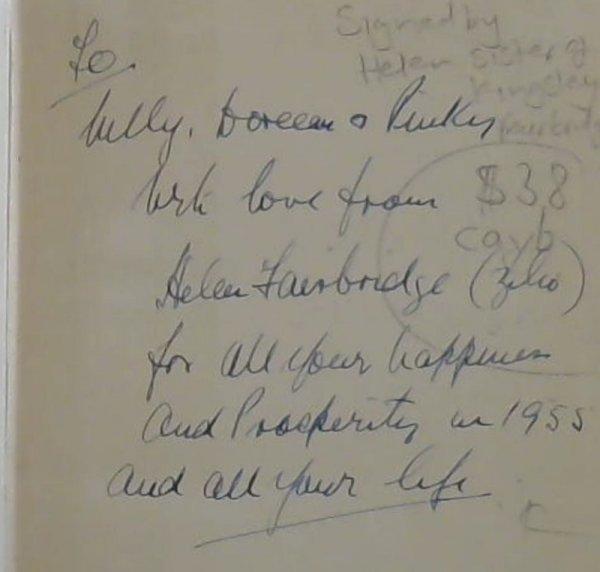 Signed by
Helen Sister of
Kingsley
Fairbridge
To
Willy, Doreen & Pinky
With love from
$38
Helen Fairbridge
for all your happiness
and Prosperity in 1955
and all your life